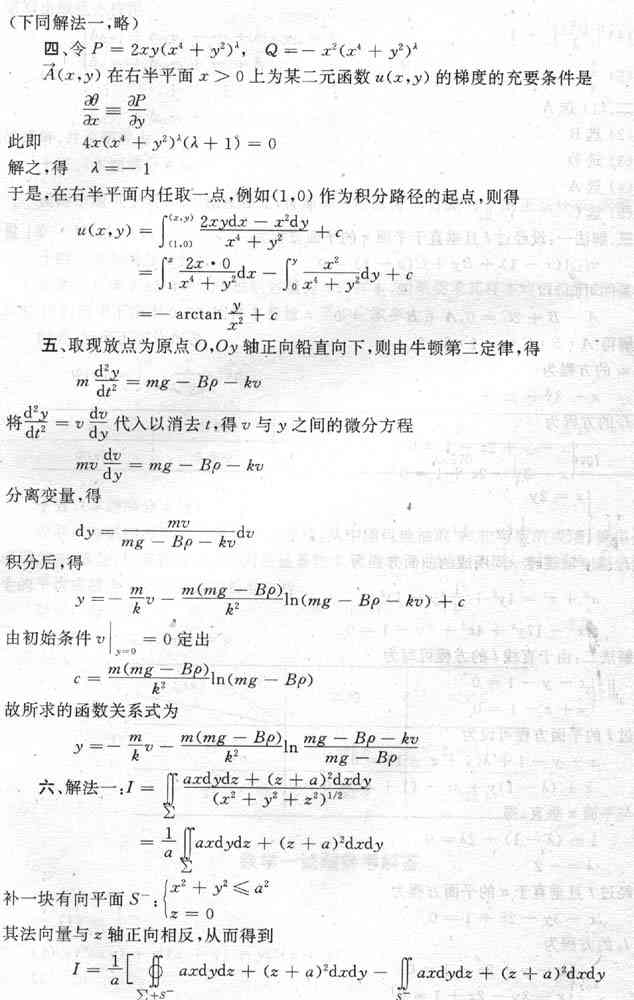 (下同解法一,略)
四、令 P = 2xy(x⁴ + y²)^λ, Q = − x²(x⁴ + y²)^λ
A⃗(x,y) 在右半平面 x > 0 上为某二元函数 u(x,y) 的梯度的充要条件是
∂θ/∂x ≡ ∂P/∂y
此即 4x(x⁴ + y²)^λ(λ + 1) = 0
解之,得 λ = − 1
于是,在右半平面内任取一点,例如(1,0) 作为积分路径的起点,则得
u(x,y) = ∫_(1,0)^(x,y) (2xydx − x²dy)/(x⁴ + y²) + c
= ∫_1^x (2x·0)/(x⁴ + y²) dx − ∫_0^y x²/(x⁴ + y²) dy + c
= − arctan y/x² + c
五、取现放点为原点 O,Oy 轴正向铅直向下,则由牛顿第二定律,得
m d²y/dt² = mg − Bρ − kv
将 d²y/dt² = v dv/dy 代入以消去 t,得 v 与 y 之间的微分方程
mv dv/dy = mg − Bρ − kv
分离变量,得
dy = mv/(mg − Bρ − kv) dv
积分后,得
y = − m/k v − m(mg − Bρ)/k² ln(mg − Bρ − kv) + c
由初始条件 v|_(y=0) = 0 定出
c = m(mg − Bρ)/k² ln(mg − Bρ)
故所求的函数关系式为
y = − m/k v − m(mg − Bρ)/k² ln (mg − Bρ − kv)/(mg − Bρ)
六、解法一:I = ∬_Σ (axdydz + (z + a)²dxdy)/(x² + y² + z²)^(1/2)
= 1/a ∬_Σ axdydz + (z + a)²dxdy
补一块有向平面 S⁻:{x² + y² ≤ a² z = 0
其法向量与 z 轴正向相反,从而得到
I = 1/a [ ∯_(Σ+S⁻) axdydz + (z + a)²dxdy − ∬_(S⁻) axdydz + (z + a)²dxdy